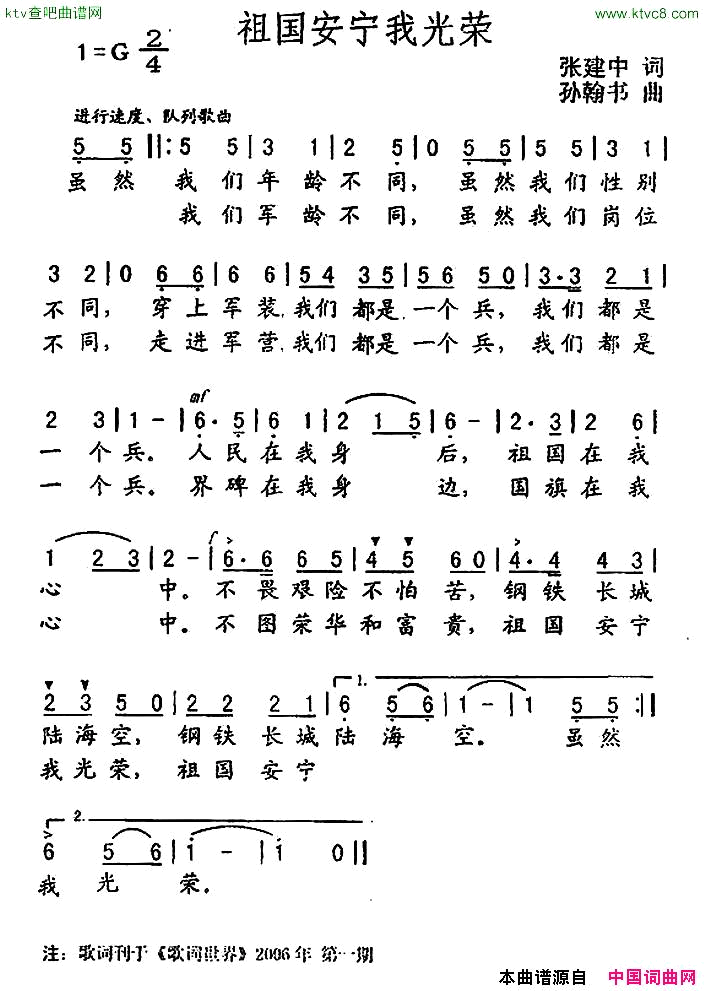 ktv查吧曲谱网
免费发布
www.ktvc8.com
祖国安宁我光荣
1=G 2/4
张建中 词
孙翰书 曲
进行速度、队列歌曲
5 5 ‖: 5 5 | 3 1 | 2 5 | 0 5 5 | 5 5 | 3 1 |
虽然 我们年龄不同, 虽然我们性别
我们军龄不同, 虽然我们岗位
3 2 | 0 6 6 | 6 6 | 5 4 3 5 | 5 6 5 0 | 3·3 2 1 |
不同, 穿上军装,我们都是一个兵, 我们都是
不同, 走进军营,我们都是一个兵, 我们都是
mf
2 3 | 1 - | 6·5 | 6 1 | 2 1 5 | 6 - | 2·3 | 2 6 |
一个兵。人民在我身 后, 祖国在我
一个兵。界碑在我身 边, 国旗在我
f > ▼ ▼ >
1 2 3 | 2 - | 6·6 6 5 | 4 5 6 0 | 4·4 4 3 |
心 中。不畏艰险不怕苦, 钢铁长城
心 中。不图荣华和富贵, 祖国安宁
▼ ▼ 1.
2 3 5 0 | 2 2 2 1 | 6 5 6 | 1 - | 1 5 5 :‖
陆海空, 钢铁长城陆海空。 虽然
我光荣, 祖国安宁
2.
>
6 5 6 | 1 - | 1 0 ‖
我光荣。
注: 歌词刊于《歌词世界》2006年 第一期
本曲谱源自 中国词曲网